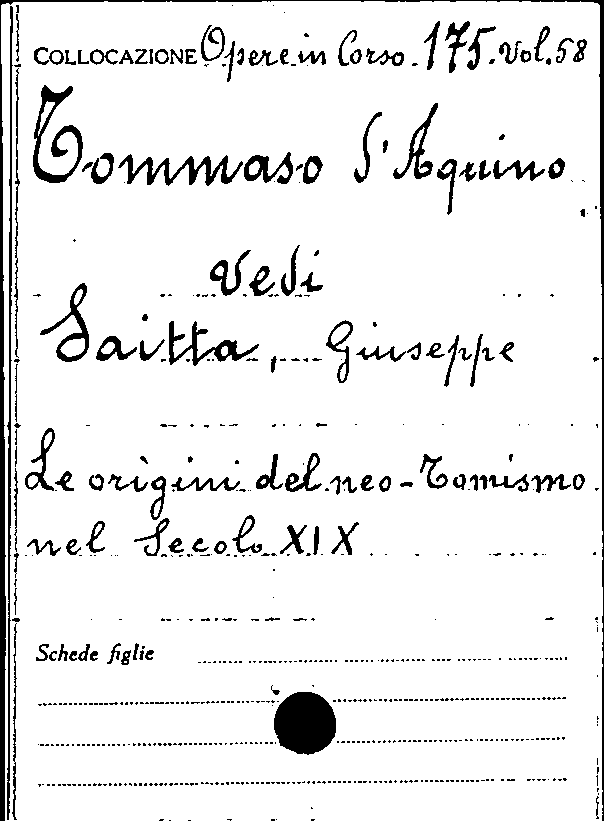 COLLOCAZIONE Opere in Corso. 175. Vol. 58
Tommaso d'Aquino
Vedi
Saitta, Giuseppe
Le origini del neo-Tomismo
nel Secolo XIX
Schede figlie